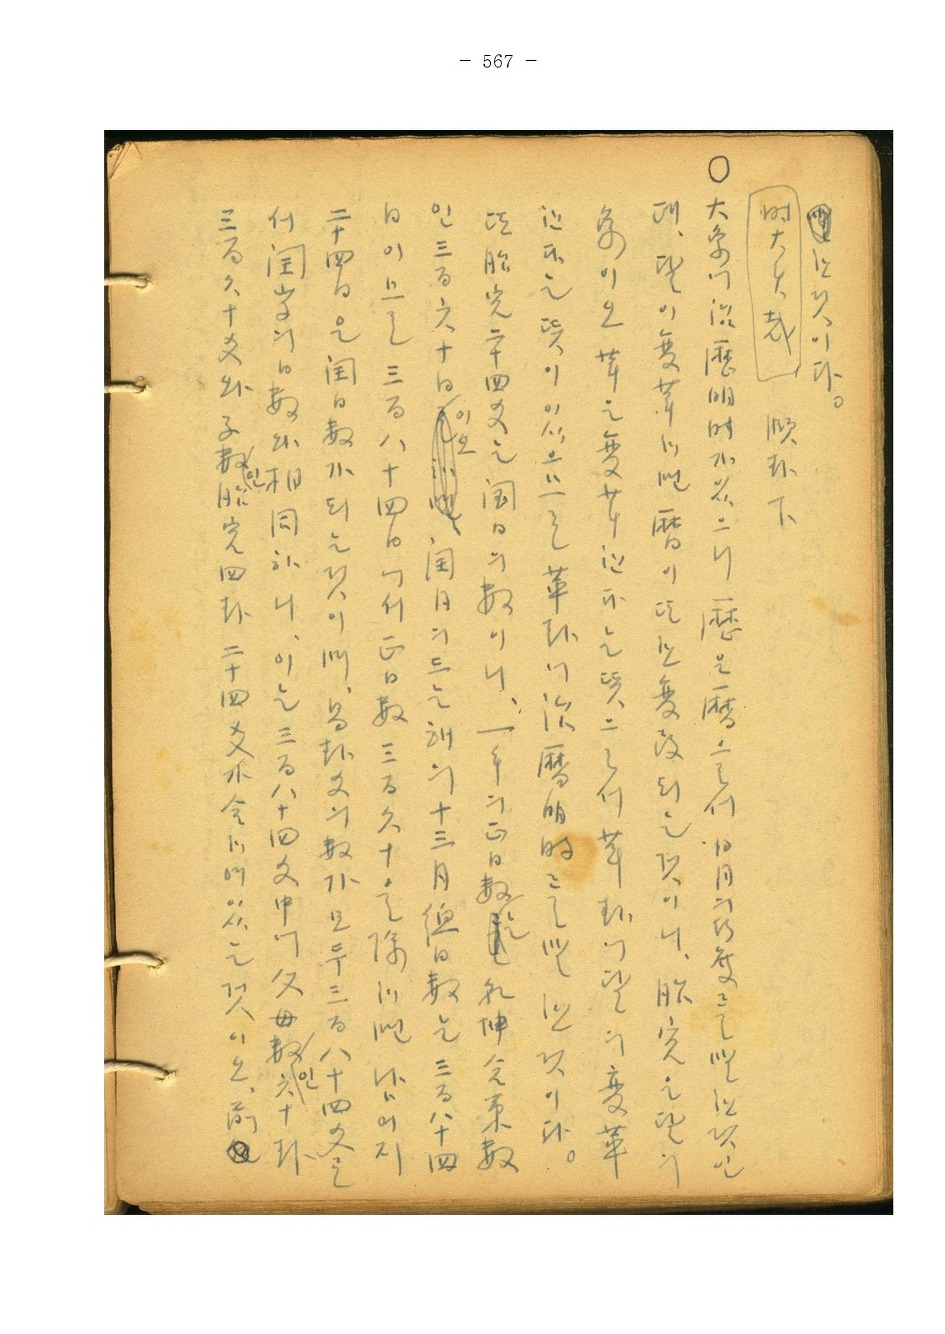 - 567 -
한 것이다。
時大矣哉 順卦下
○大象에 治歷明時가 있으니 歷은 曆으로서 日月의 行度로 된 것인
데、달이 變革하면 曆이 또한 變改되는 것이니、胎宮은 달의
象이오 革은 變革한다는 뜻으로서 革卦에 달의 變革
한다는 뜻이 있으므로 革卦에 治曆明時로 한 것이다。
또 胎宮二十四爻는 閏日의 數이니、一年의 正日數는 乾坤合策數
인 三百六十日이오 閏月의 드는 해의 十三月 總日數는 三百八十四
日이므로 三百八十四日에서 正日數 三百六十을 除하면 나머지
二十四日은 閏日數가 되는 것이며、易卦爻의 數가 모두 三百八十四爻로
서 閏字의 日數와 相同하니、이는 三百八十四爻中에 父母數인 六十卦
三百六十爻와 子數인 胎宮四卦 二十四爻가 合하여 있는 것이오、前